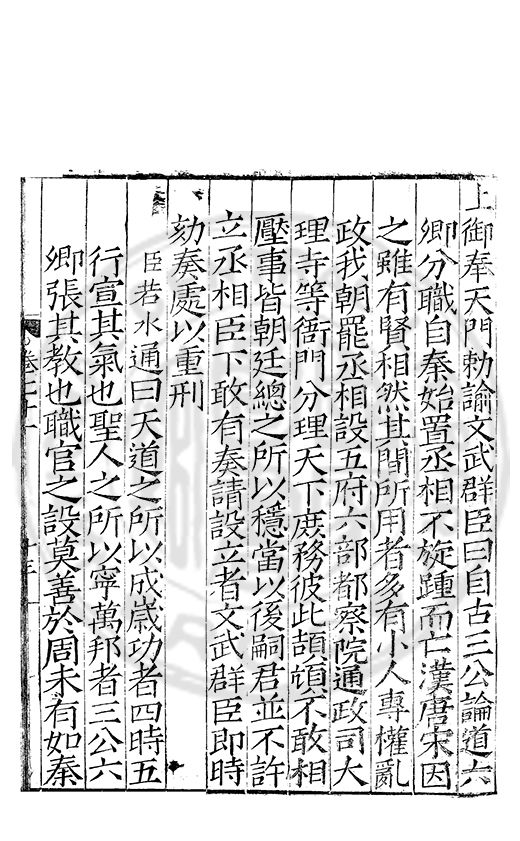 上御奉天門勅諭文武群臣曰自古三公論道六
卿分職自秦始置丞相不旋踵而亡漢唐宋因
之雖有賢相然其間所用者多有小人專權亂
政我朝罷丞相設五府六部都察院通政司大
理寺等衙門分理天下庶務彼此頡頏不敢相
壓事皆朝廷總之所以穩當以後嗣君並不許
立丞相臣下敢有奏請設立者文武群臣即時
劾奏處以重刑
臣若水通曰天道之所以成歲功者四時五
行宣其氣也聖人之所以寧萬邦者三公六
卿張其教也職官之設莫善於周未有如秦